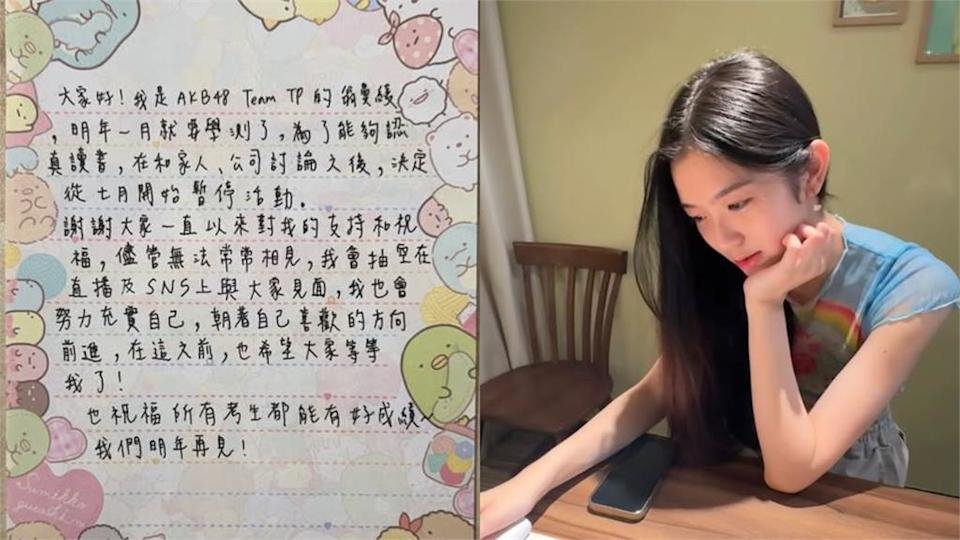 大家好！我是 AKB48 Team TP 的翁曼綾
，明年一月就要學測了，為了能夠認
真讀書，在和家人、公司討論之後，決定
從七月開始暫停活動。
謝謝大家一直以來對我的支持和祝
福，儘管無法常常相見，我會抽空在
直播及SNS上與大家見面，我也會
努力充實自己，朝著自己喜歡的方向
前進，在這之前，也希望大家等等
我了！
也祝福所有考生都能有好成績～
我們明年再見！
Sumikko
gurashi